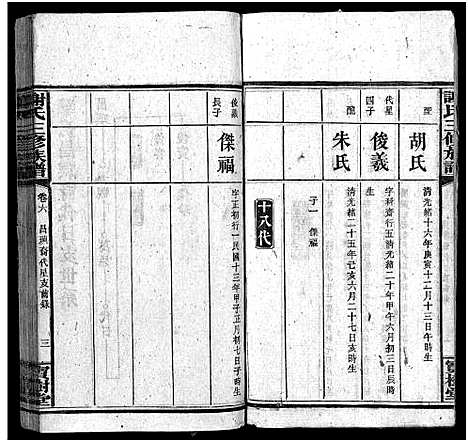 謝氏三修族譜
配
胡氏
清光緒十六年庚寅十二月十三日午時生
代星
四子
俊義
字科齋行五清光緒二十年甲午六月初三日辰時
生
配
朱氏
清光緒二十五年己亥六月二十七日亥時生
子一 傑福
十八代
寶樹堂
俊義
長子
傑福
字正初行一民國十三年甲子正月初七日子時生
謝氏三修族譜
卷六
三
寶樹堂